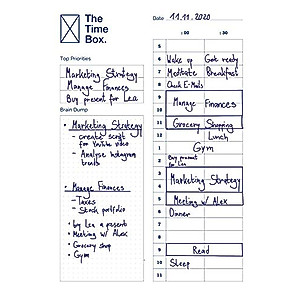 The
Time
Box.
Date 11.11.2020
:00 :30
Top Priorities
Marketing Strategy
Manage Finances
Buy present for Lea
Brain Dump
• Marketing Strategy
- create script
for YouTube video
- Analyse Instagram
trends
• Manage Finances
- Taxes
- Stock portfolio
• by Lea a present
• Meeting w/ Alex
• Grocery shop
• Gym
5
6 Wake up Get ready
7 Meditate Breakfast
8 Check E-Mails
9
10 Manage Finances
11 Grocery Shopping
12 Lunch
1 Gym
2 Buy present
for Lea
3
4 Marketing Strategy
5 Meeting w/ Alex
6 Dinner
7
8
9 Read
10 Sleep
11